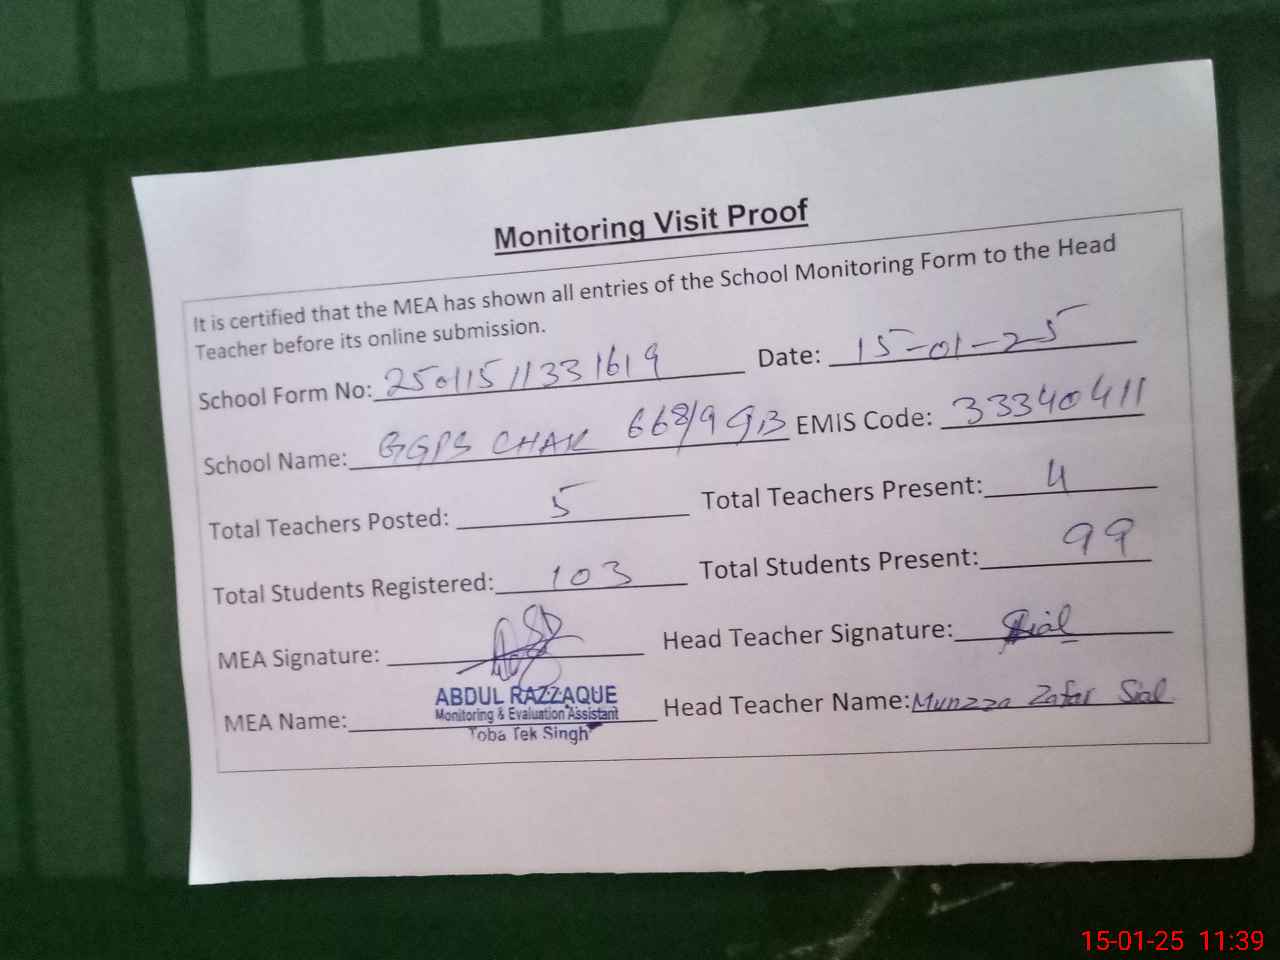 Monitoring Visit Proof
It is certified that the MEA has shown all entries of the School Monitoring Form to the Head
Teacher before its online submission.
School Form No: 25011511331619 Date: 15-01-25
School Name: GGPS CHAK 668/9 GB EMIS Code: 33340411
Total Teachers Posted: 5 Total Teachers Present: 4
Total Students Registered: 103 Total Students Present: 99
MEA Signature: Head Teacher Signature: Sial
MEA Name: ABDUL RAZZAQUE Head Teacher Name: Munzza Zafar Sial
Monitoring & Evaluation Assistant
Toba Tek Singh
15-01-25 11:39